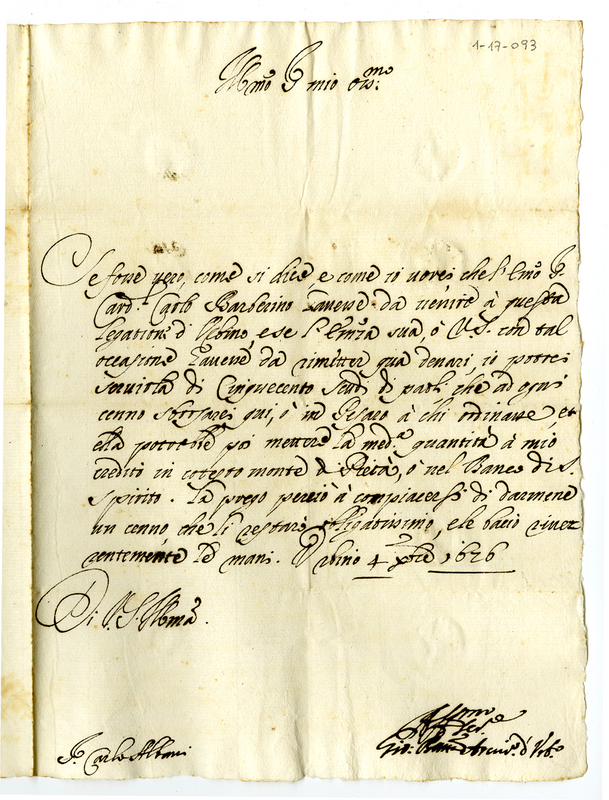 1-17-093
Ill.mo Sr mio oss.mo
Se fosse vero, come si dice, e come io vorei che l'Emo Sr
Card.l Carlo Barberino havesse da venire à questa
legatione d'Urbino, e se l'Emza sua, ò V.S. con tal
occasione havesse da rimetter quà denari, io potrei
servirla di Cinquecento Scudi di paoli che ad ogni
cenno sborsarei qui, ò in Pesaro à chi ordinasse, et
ella potrebbe poi mettere la med.a quantità à mio
credito in cotesto monte di Pietà, ò nel Banco di S.
Spirito. La prego perciò à compiacersi di darmene
un cenno, che li restarò obligatissimo, e le bacio river
rentemente le mani. Urbino 4 Xbre 1626
Di V.S. Ill.ma
Sr Carlo Albani
Aff.mo
Ser.e
Gio: d'Urb.o